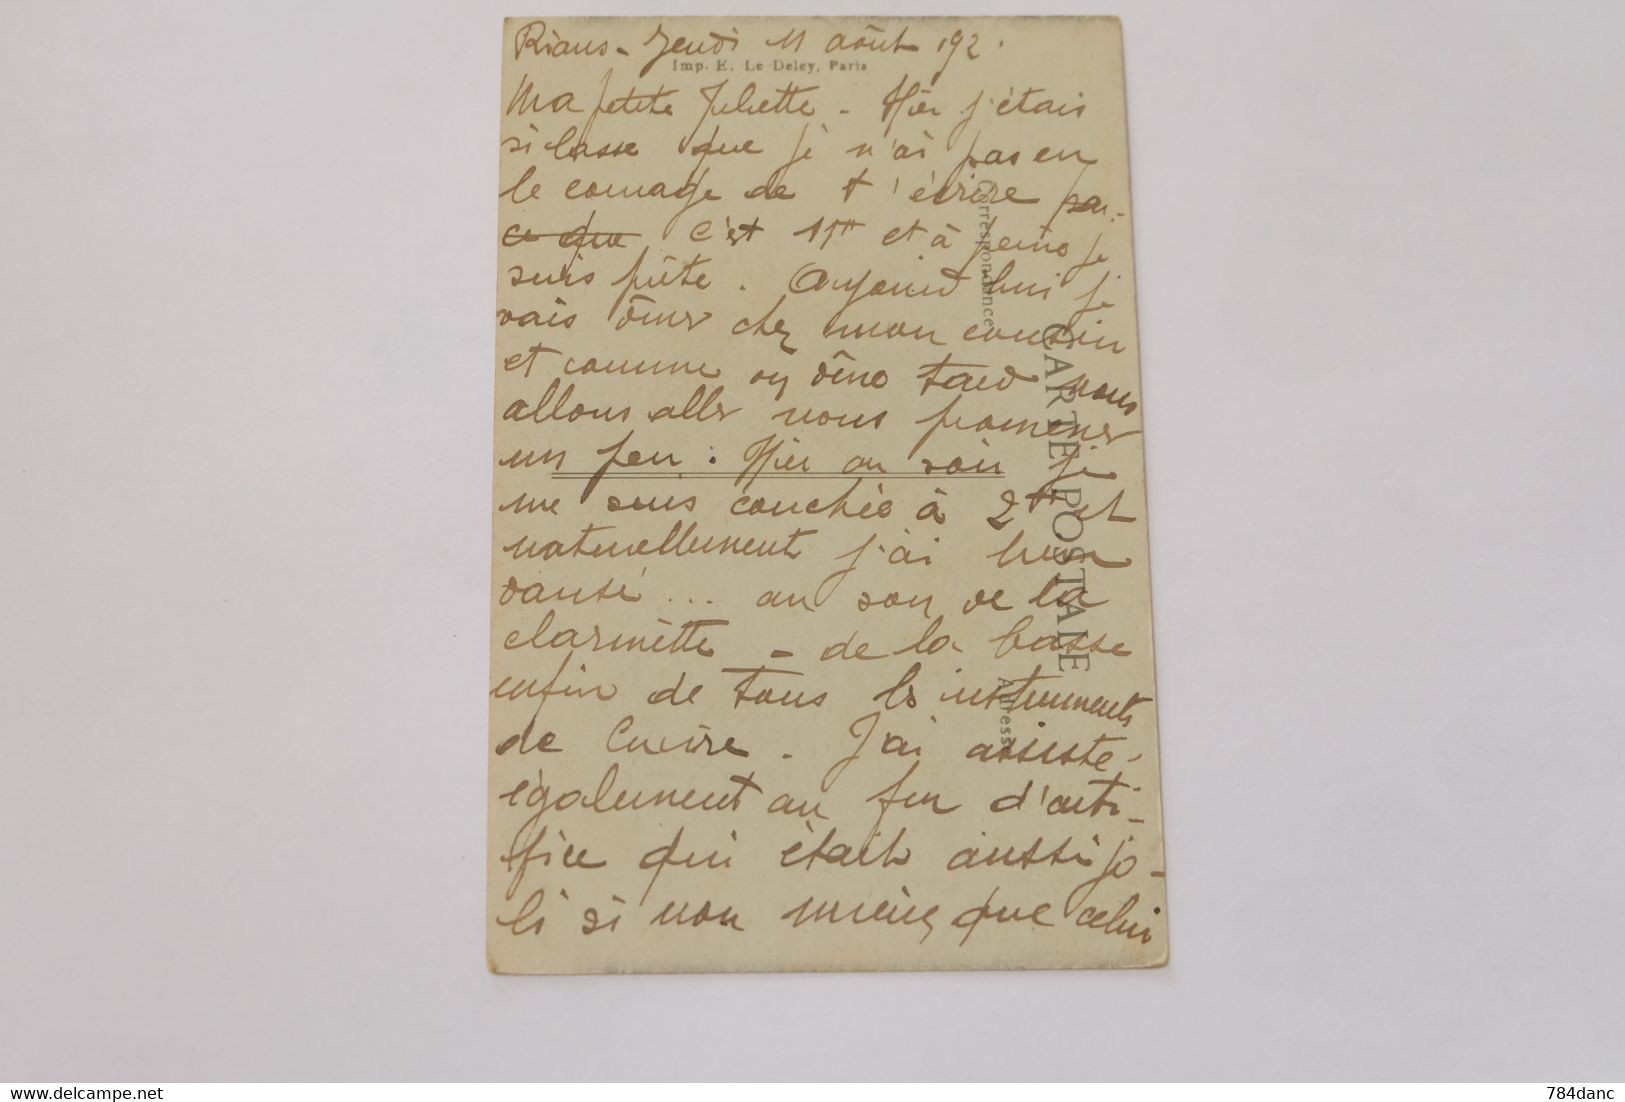 Rians - Jeudi 11 août 192.
Imp. E. Le Deley, Paris
Ma petite Juliette - Hier j'étais
si lasse que je n'ai pas eu
le courage de t'écrire par-
ce que c'est 11H et à peine je
suis prête. Aujourd'hui je
vais dîner chez mon cousin
et comme on dîne tard nous
allons aller nous promener
un peu. Hier au soir je
me suis couchée à 2H et
naturellement j'ai bien
dansé... au son de la
clarinette - de la basse
enfin de tous les instruments
de cuivre. J'ai assisté
également au feu d'arti-
fice qui était aussi jo-
li si non mieux que celui
Correspondance
CARTE POSTALE
Adresse
www.delcampe.net
784danc